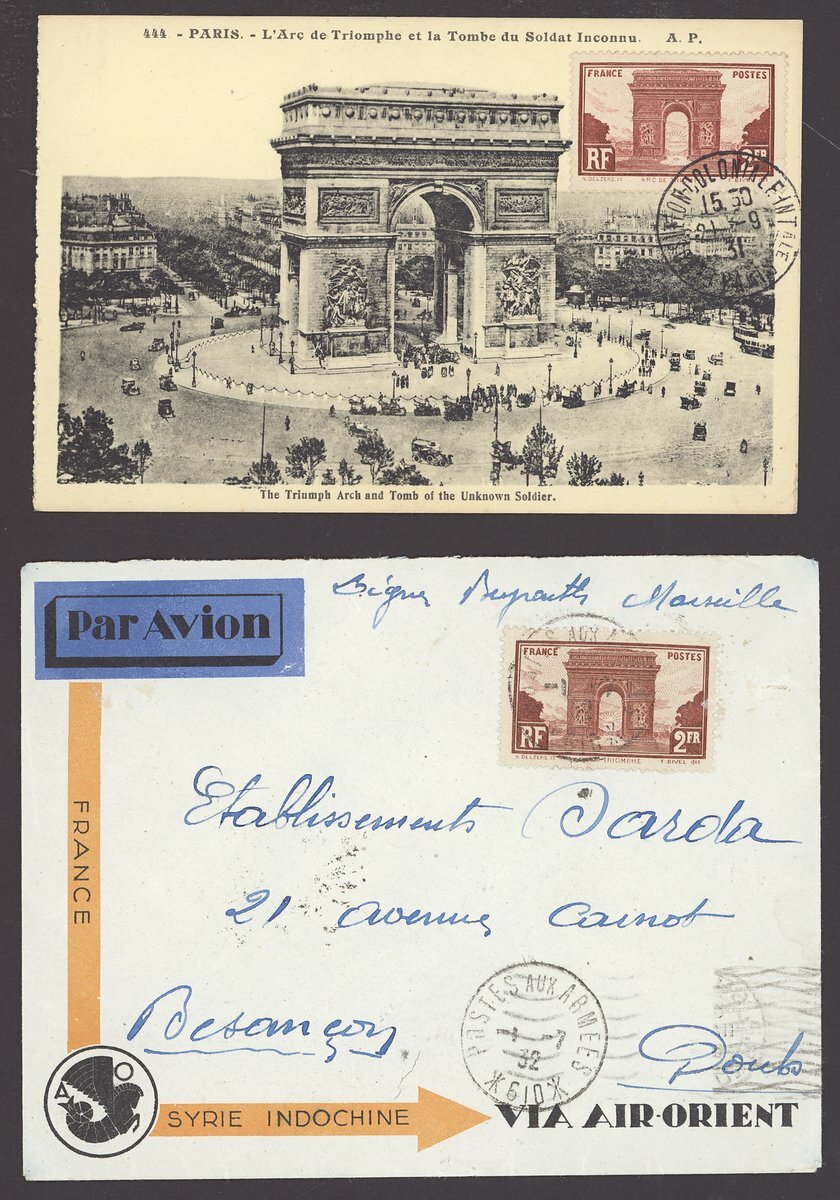 444 - PARIS. - L'Arc de Triomphe et la Tombe du Soldat Inconnu. A. P.
FRANCE POSTES
RF 2FR
A. DELZERS. sc ARC DE
COLONIALE INTLE
15 30
21 - 9
31
PARIS
The Triumph Arch and Tomb of the Unknown Soldier.
Par Avion
Marseille
FRANCE POSTES
RF 2FR
A. DELZERS. sc TRIOMPHE F. BIVEL del
Etablissements Darda
21 avenue Carnot
Besançon
Doubs
FRANCE
POSTES AUX ARMEES
1 - 7
32
*610*
AO
SYRIE INDOCHINE
VIA AIR-ORIENT